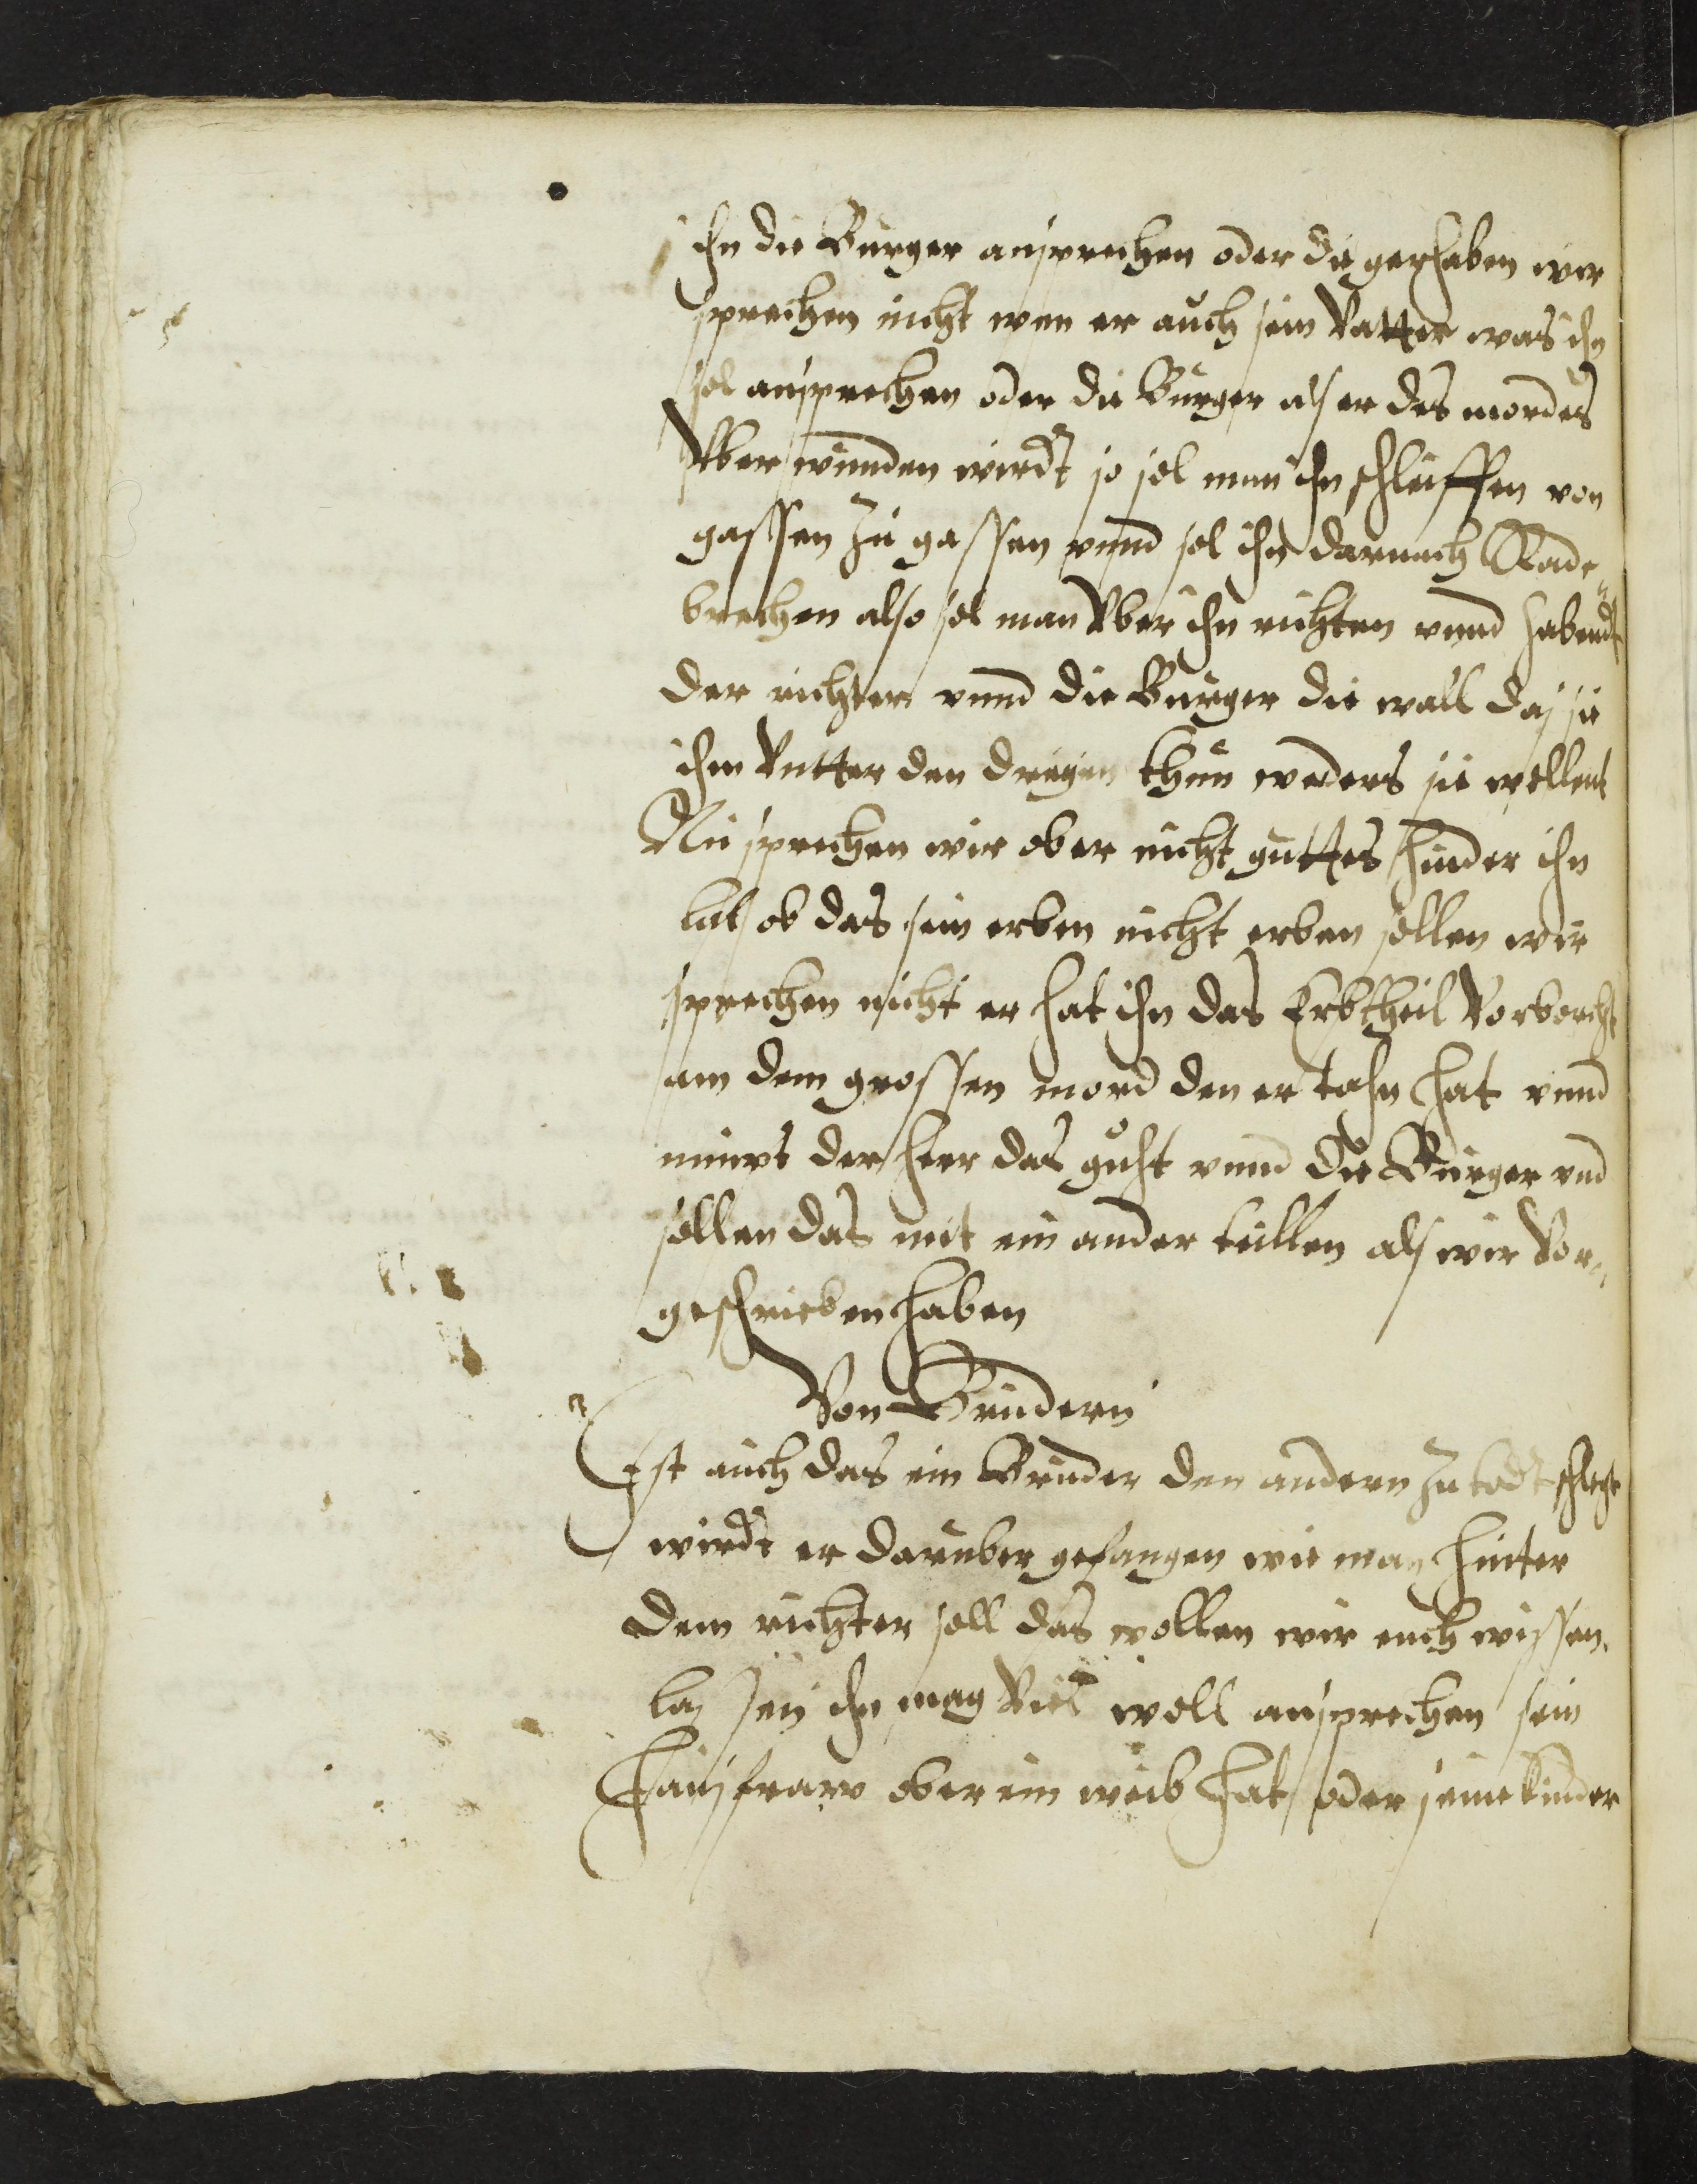 ihn die Bürger ansprechen oder die gerhaben wir
sprechen nicht wen er auch sein Vatter was ihn
sol ansprechen oder die Bürger als er des mordes
Vber wunden wirdt so sol man ihn schleiffen von
gassen zu gassen vnnd sol ihn darnach Rade
brechen also sol man Vber ihn richten vnnd habendt
der richter vnnd die Bürger die wall das sie
ihm Vntter den dreyen thun weders sie wellent
Nu sprechen wir ober nicht guttes hinder ihn
lat ob das sein erben nicht erben sollen wir
sprechen nicht er hat ihn das Erbtheil Vorworcht
am dem grossen mord den er tahn hat vnnd
nimpt der herr das guht vnnd die Bürger vnd
sollen das mit ein ander teillen als wir Vor
geschrieben haben
Von Brudern
Ist auch das ein Bruder den andern zu todt schlegt
wirdt er daruber gefangen wie man hinter
dem richter soll das wollen wir euch wissen
las sen ihn mag Viel woll ansprechen sein
Hausfraw ober ein weib hat oder seine kinder